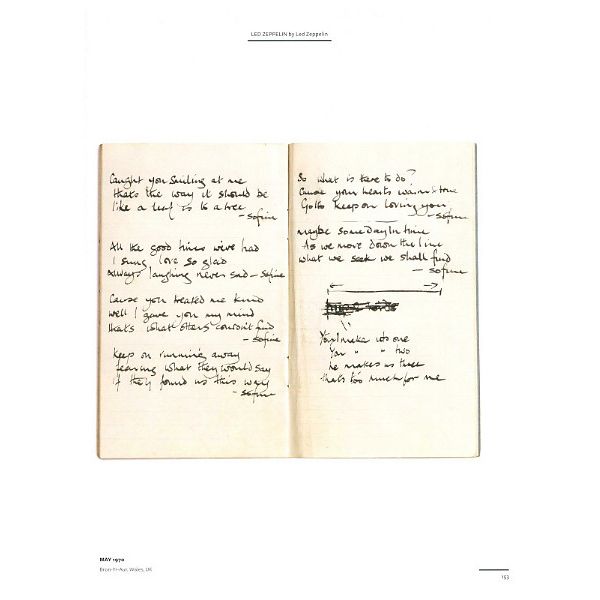 LED ZEPPELIN by Led Zeppelin
Caught you smiling at me
thats the way it should be
like a leaf is to a tree
— so fine
All the good times we've had
I sung love so glad
Always laughing never sad — so fine
Cause you treated me kind
well I gave you my mind
that's what others couldn't find
— so fine
Keep on running away
fearing what they would say
if they found us this way
— so fine
So what is there to do?
Cause your hearts warm & true
Gotto keep on loving you
— so fine
maybe someday in time
As we move down the line
what we seek we shall find
— so fine
You / make us one
You " " two
he makes us three
that's too much for me
MAY 1970
Bron-Yr-Aur, Wales, UK
153